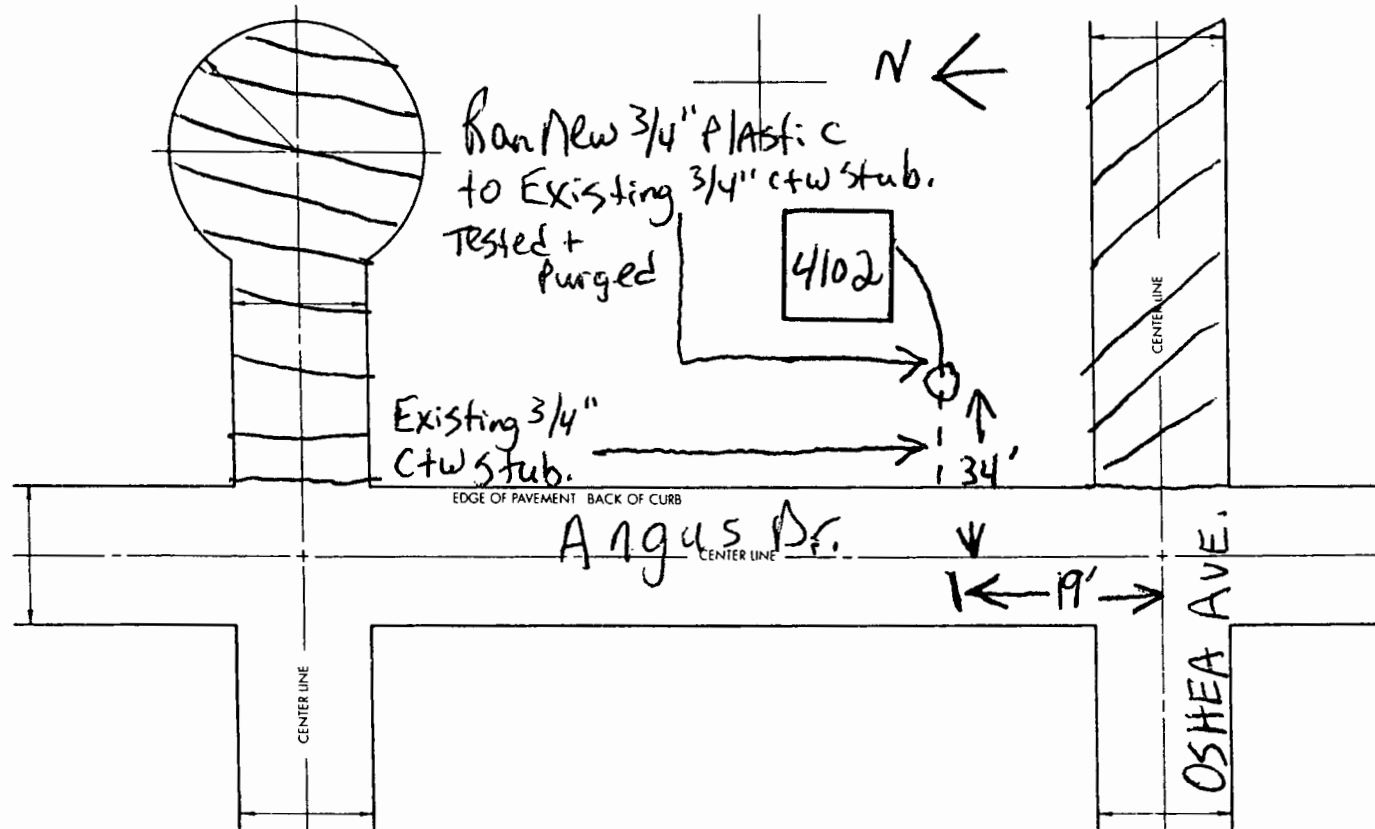 N
Ran New 3/4" Plastic
to Existing 3/4" ctw stub.
Tested +
Purged
4102
CENTER LINE
Existing 3/4"
Ctw stub.
34'
EDGE OF PAVEMENT BACK OF CURB
Angus Dr.
CENTER LINE
19'
CENTER LINE
OSHEA AVE.